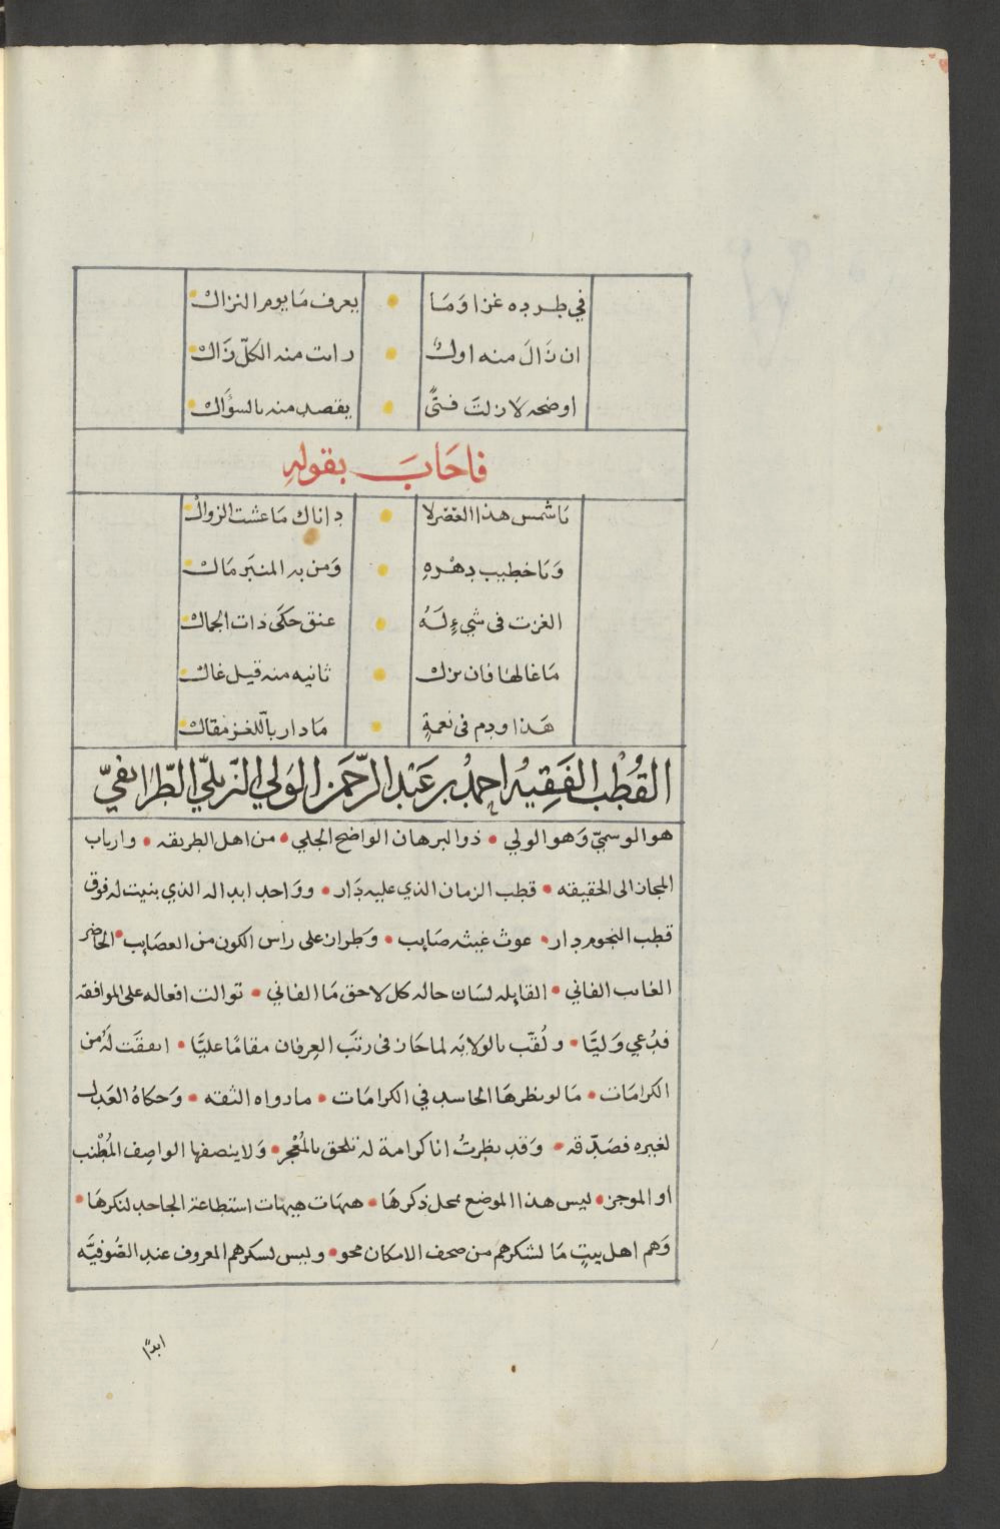 في طرده غزا وَمَا • يعرف مَا يوم النزال
ان زَالَ منه اول • رات منه الكلّ زَال
اوضحه لا زلتَ فتًى • يقصد منه بالسؤَال
فاجَابَ بقولهِ
يَا شمس هذا العصر لا • داناك مَا عشت الزوال
وَيَا خطيب دهْرهِ • وَمن به المنبَر مَال
الغزت فى شيءٍ لَهُ • عنق حكَى ذات الجمال
مَا غالهَا فان يزل • ثانيه منه قيل غال
هَذا ودم فى نعمةٍ • مَا دار باللغز مقال
القُطْب الفَقِيهُ احمدُ بن عَبْد الرَّحمَن الوَلي الزَّيلَيّ الطَّرَايفيّ
هو الوسميّ وَهو الولي • ذو البرهان الواضح الجلي • من اهل الطريقه • وارباب
المجاز الى الحقيقه • قطب الزمان الذي عليه دَار • ووَاحد ابداله الذي بنيت له فوق
قطب النجوم دار • غوث غيثه صَايب • وَطراز على راس الكون من العصَايب • الحَاضر
الغايب الفاني • القايله لسَان حاله كل لاحق مَا الفاني • توالت افعاله على الموافقه
فدُعي وَليَّا • ولُقّب بالوَلايَه لما حَاز فى رتَب العِرفان مقامًا عليَّا • اتفقَت لهُ من
الكرامَات • مَا لو نظرهَا الحَاسد في الكرا مَات • ما رواه الثقه • وَحكاهُ العَدل
لغيره فصَدّقه • وَقد نظرتُ انا كرامة له تلحق بالمُعْجز • وَلا ينصفها الواصِف المُطْنب
او الموجز • ليس هذا الموضع محل ذكرهَا • هيهَات هيهَات استطاعة الجاحد لنكرهَا •
وَهم اهل بيتٍ مَا لشكرهم من صحف الامكان محو • وليس لسكرهم المعروف عند الصُّوفيَّه
ابدًا